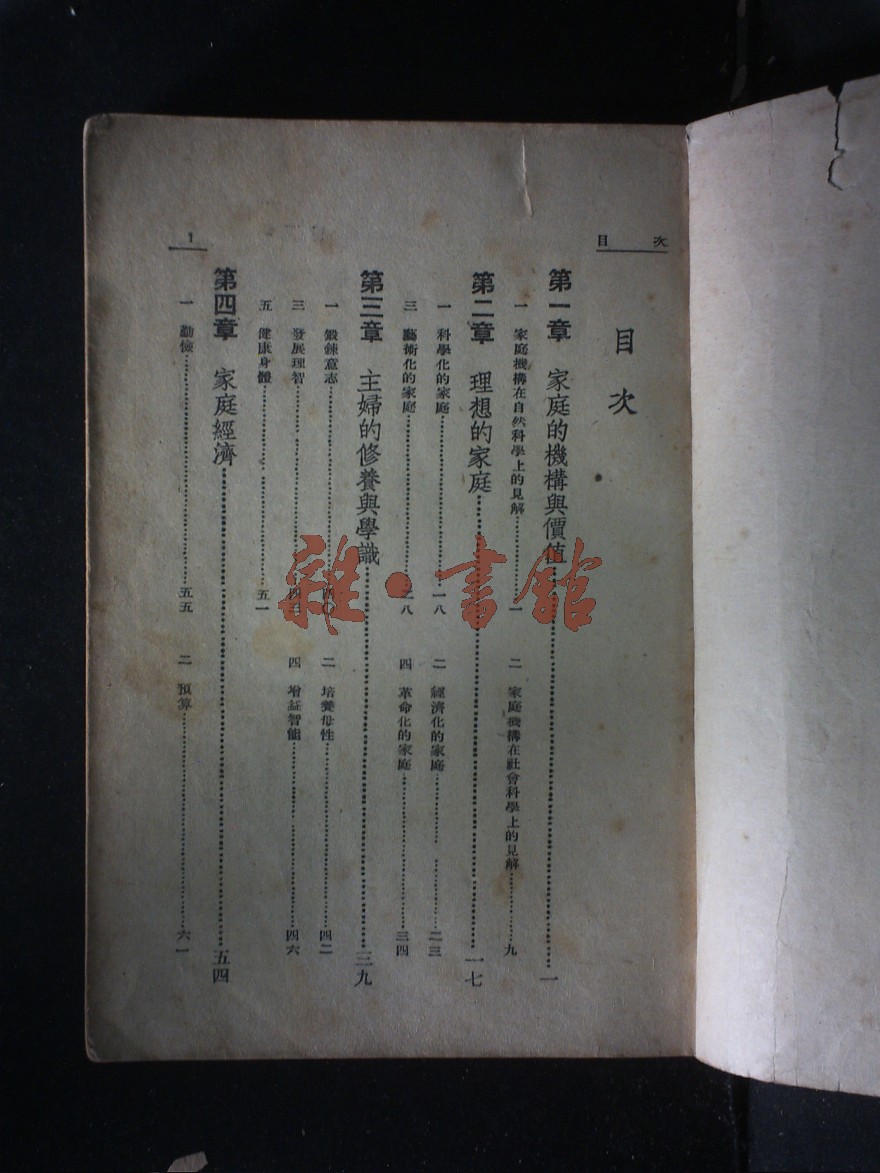 目次
目次
第一章 家庭的機構與價值……一
一 家庭機構在自然科學上的見解……一 二 家庭機構在社會科學上的見解……九
第二章 理想的家庭……一七
一 科學化的家庭……一八 二 經濟化的家庭……二三
三 藝術化的家庭……二八 四 革命化的家庭……三四
第三章 主婦的修養與學識……三九
一 鍛鍊意志……四〇 二 培養母性……四二
三 發展理智……四三 四 增益智能……四六
五 健康身體……五一
第四章 家庭經濟……五四
一 勤儉……五五 二 預算……六一
1
雜·書館